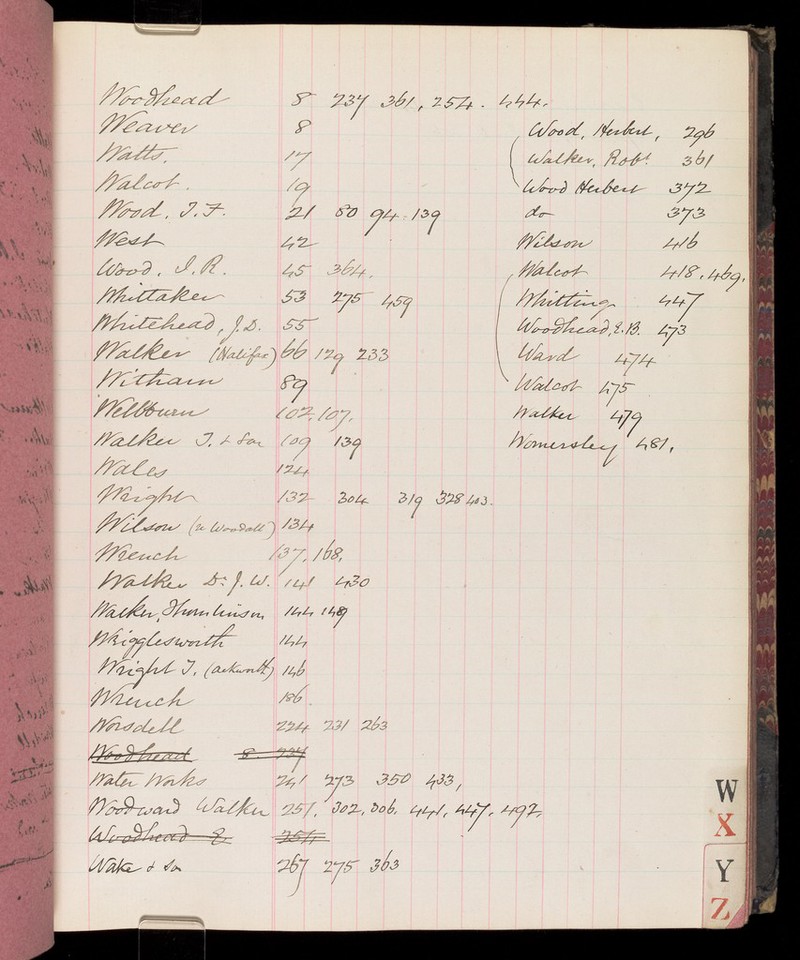 Woodhead 8 237 361, 254. 444.
Weaver 8
Watts. 17
Walcot. 19
Wood, J. F. 21 80 94 139
West 42
Wood. J. R. 45 364.
Whittaker 53 275 459
Whitehead, J. D. 55
Walker (Halifax) 66 129 233
Witham 89
Wellburn 102, 107.
Walker J. & Son 109 139
Wales 124
Wright 132 304 319 328 403.
Wilson (Woodall) 134
Wrench 137, 168,
Walker Dr J. W. 141 430
Walker, Thomlinson 144 149
Wrigglesworth 144
Wright J. (Ackworth) 146
Wrench 186
Worsdell 224 231 263
Woodhead 8. 237
Water Works 241 273 350 433,
Woodward Walker 251. 302, 306, 441, 447, 497.
Woodhead E. 254
Wake & Son 267 275 363
Wood, Herbert, 296
Walker, Robt 361
Wood Herbert 372
do 373
Wilson 416
Walcot 418, 469,
Whitting 447
Woodhead, E.B. 473
Ward 474
Walcot 475
Walker 479
Womersley 481,
W
X
Y
Z